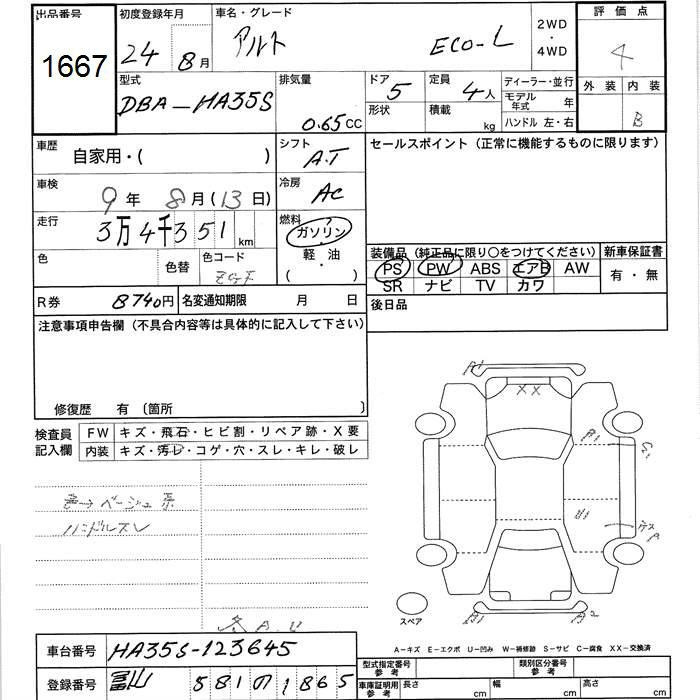 出品番号
1667
初度登録年月
24 8月
車名・グレード
アルト ECO-L
2WD
・
4WD
評価点
4
型式
DBA-HA35S
排気量
0.65CC
ドア
5
形状
定員
4人
積載
kg
ディーラー・並行
モデル年式 年
ハンドル 左・右
外装 内装
B
車歴
自家用・( )
シフト
A.T
セールスポイント (正常に機能するものに限ります)
車検
9年 8月(13日)
冷房
AC
走行
3万4千351km
燃料
ガソリン
・
軽・油
( )
色
色替
色コード
装備品 (純正品に限り○をつけてください)
PS PW ABS エアB AW
SR ナビ TV カワ
新車保証書
有・無
R券 8740円
名変通知期限 月 日
後日品
注意事項申告欄 (不具合内容等は具体的に記入して下さい)
修復歴 有 (箇所 )
検査員記入欄
FW キズ・飛石・ヒビ割・リペア跡・X要
内装 キズ・汚レ・コゲ・穴・スレ・キレ・破レ
ベージュ系
ハンドルスレ
A1
XX
A1
A1
A1
A2
スペア
A-キズ E-エクボ U-凹み W-補修跡 S-サビ C-腐食 XX-交換済
車台番号 HA35S-123645
登録番号 富山 581 の 1865
型式指定番号 参考
類別区分番号 参考
車庫証明用 参考
長さ cm
幅 cm
高さ cm